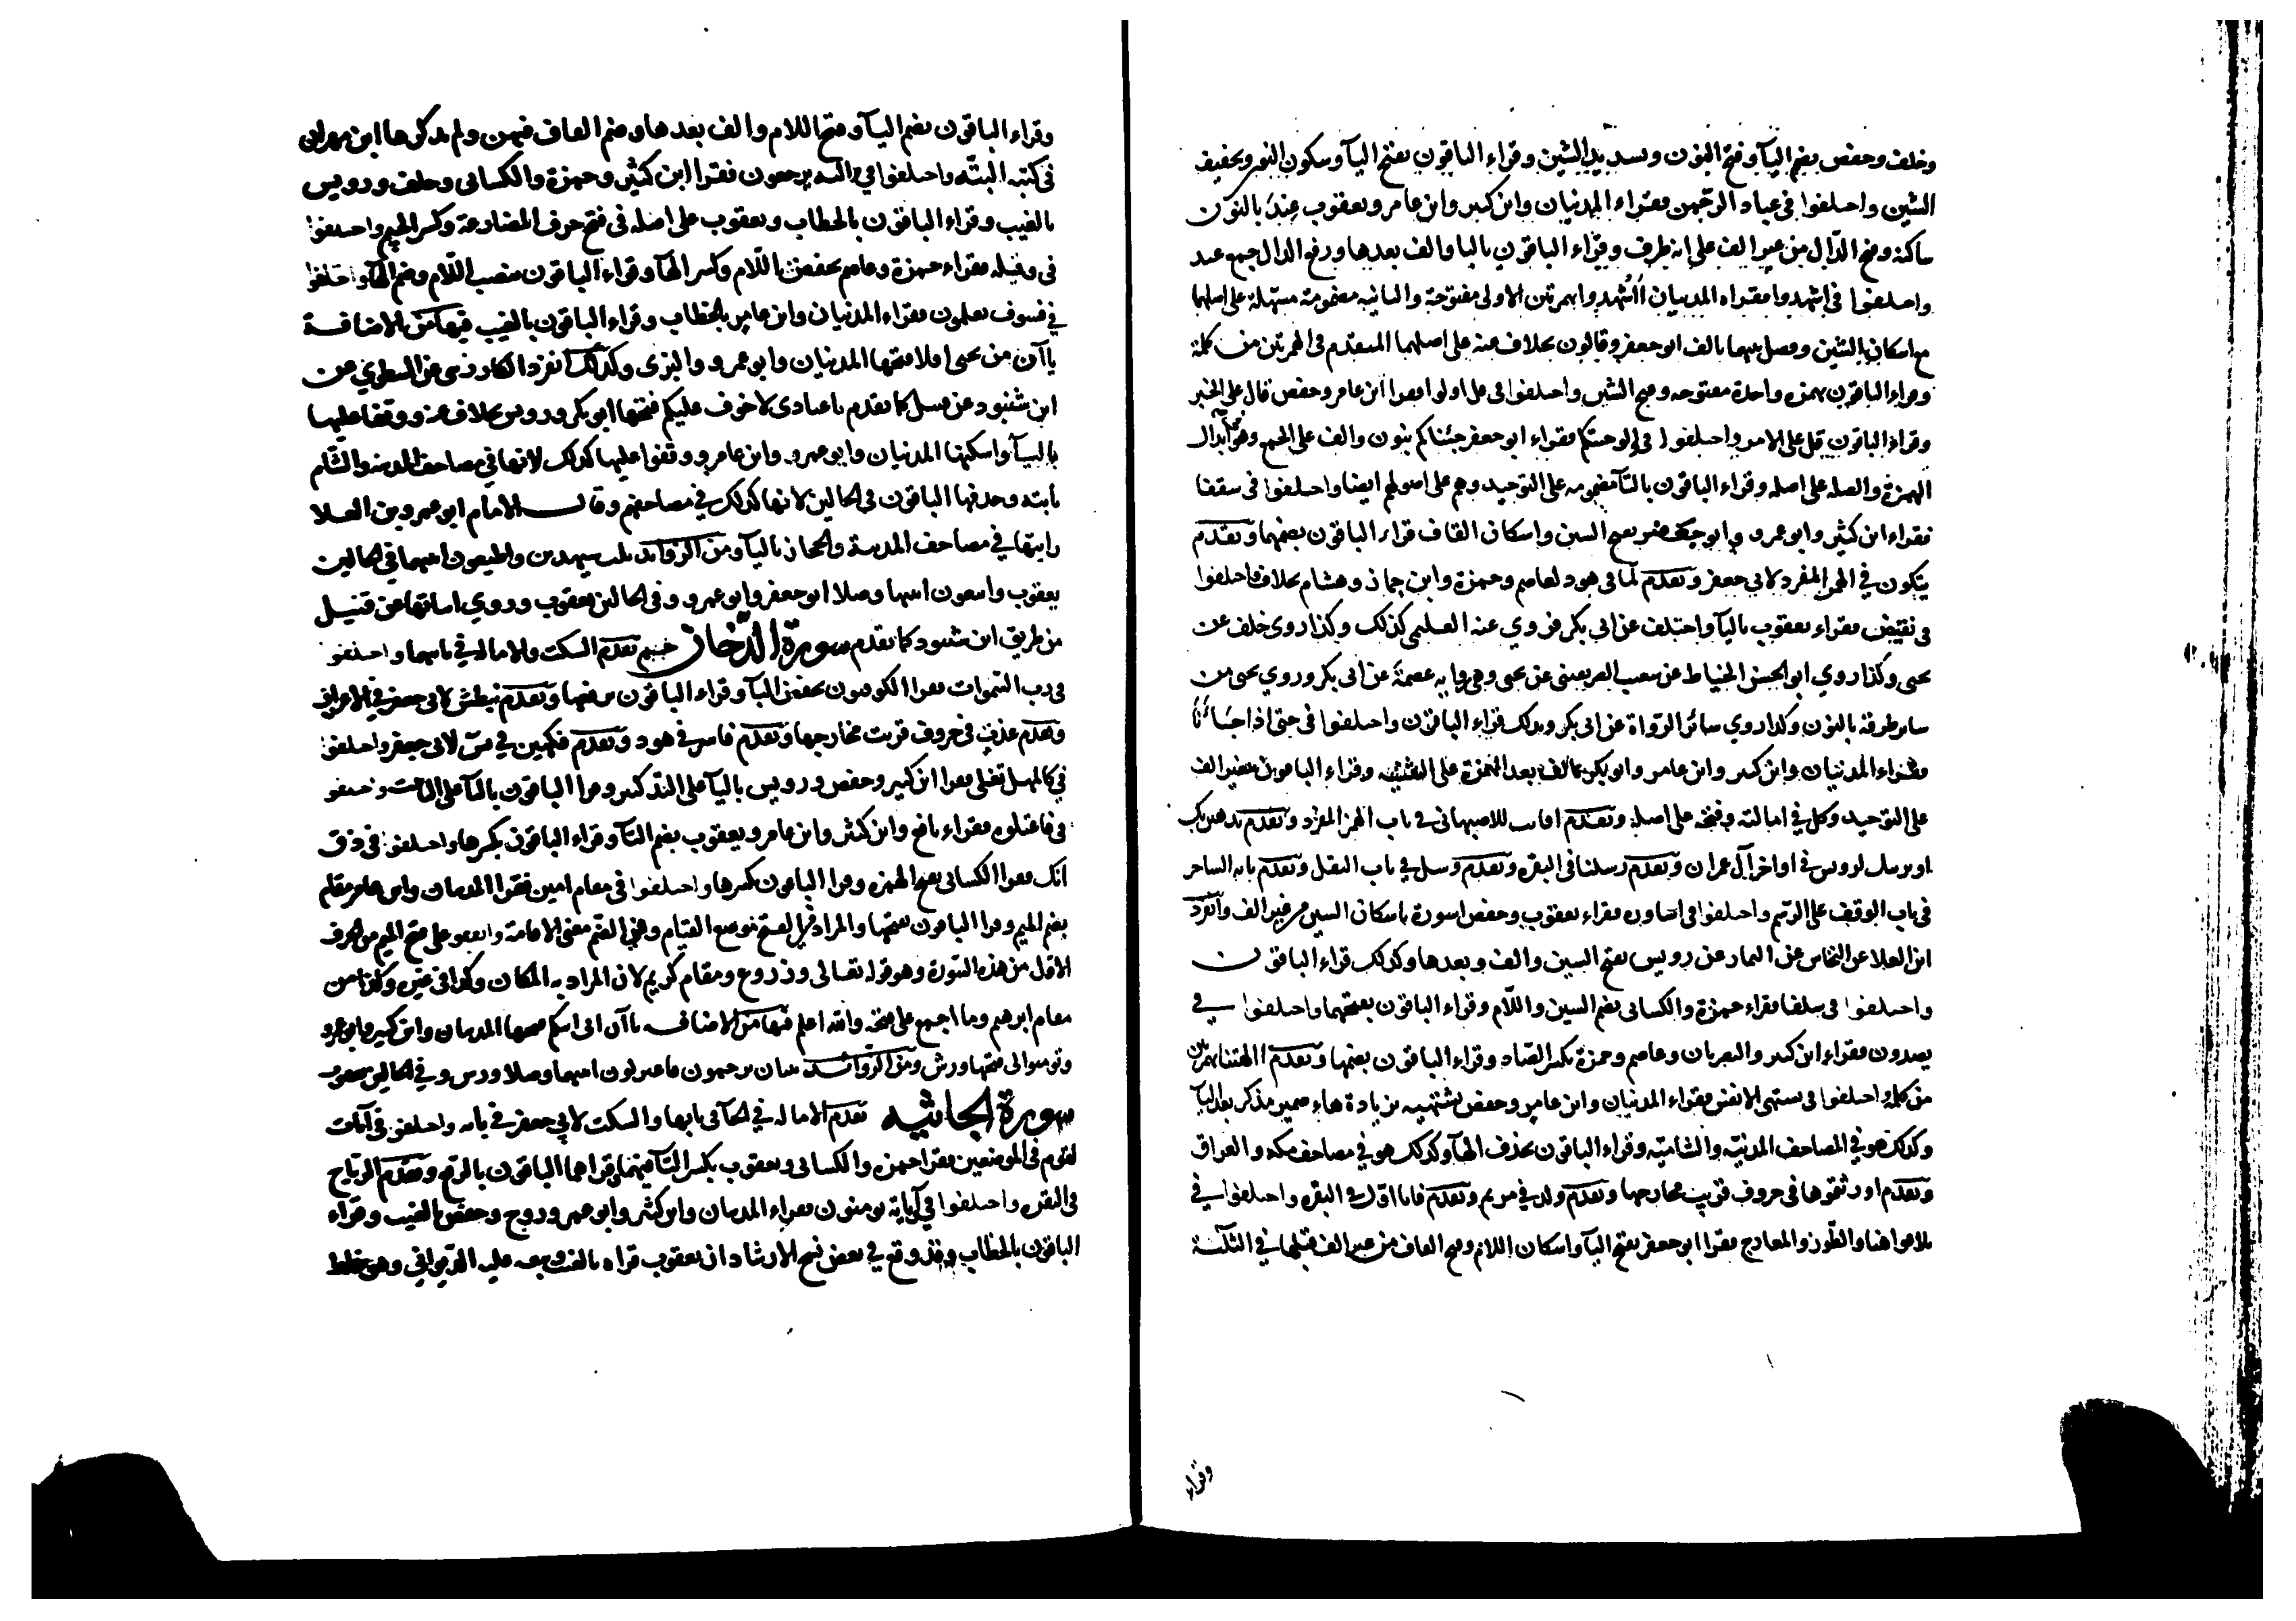 وخلف وحفص بضم اليآ وفتح النون وتسديد الشين وقراء الباقون بفتح اليآ وسكون النون وتخفيف
الشين واختلفوا فى عباد الرحمن فقراء المدنيان وابن كثير وابن عامر ويعقوب عند بالنون
ساكنة وفتح الدال من غير الف على انه ظرف وقراء الباقون بالبا والف بعدها ورفع الدال جمع عبد
واختلفوا فى اشهدوا فقراء المدنيان أأشهدوا بهمزتين الاولى مفتوحة والثانية مضمومة مسهلة على اصلهما
مع اسكان الشين وفصل بينهما بالف ابو جعفر وقالون بخلاف عنه على اصلهما المتقدم فى الهمزتين من كلمة
وقراء الباقون بهمزة واحدة مفتوحة وفتح الشين واختلفوا فى قل اولو فقرا ابن عامر وحفص قال على الخبر
وقراء الباقون قل على الامر واختلفوا فى اولو جئتكم فقراء ابو جعفر جئناكم بنون والف على الجمع وهو ابدال
الهمزة والصله على اصله وقراء الباقون بالتآ مضمومه على التوحيد وهم على اصولهم ايضا واختلفوا فى سقفا
فقراء ابن كثير وابو عمرو وابو جعفر بفتح السين واسكان القاف قراء الباقون بضمهما وتقدم
يتكون فى الهمز المفرد لابى جعفر وتقدم لما فى هود لعاصم وحمزة وابن جماز وهشام بخلاف واختلفوا
فى نقيض فقراء يعقوب باليآ واختلف عن ابى بكر فروي عنه العليمى كذلك وكذا روى خلف عن
يحيى وكذا روي ابو الحسن الخياط عن شعيب الصريفينى عن يحيى وهى روايه عصمة عن ابى بكر وروي يحيى من
ساير طرقه بالنون وكذا روي سائر الرواة عن ابى بكر وبذلك قراء الباقون واختلفوا فى حتى اذا جآءنا
فقراء المدنيان وابن كثير وابن عامر وابو بكر بالف بعد الهمزة على التثنيه وقراء الباقون بغير الف
على التوحيد وكل فى امالته وفتحه على اصله وتقدم افانت للاصبهانى فى باب الهمز المفرد وتقدم نذهبن بك
او نرينك لرويس فى اواخر آل عمران وتقدم رسلنا فى البقره وتقدم وسل فى باب النقل وتقدم يا ايه الساحر
فى باب الوقف على الرسم واختلفوا فى اساورة فقراء يعقوب وحفص اسورة باسكان السين من غير الف وانفرد
ابن العلاف عن النخاس عن التمار عن رويس بفتح السين والف وبعدها وكذلك قراء الباقون
واختلفوا فى سلفا فقراء حمزة والكسائى بضم السين واللام وقراء الباقون بفتحهما واختلفوا فى
يصدون فقراء ابن كثير والبصريان وعاصم وحمزة بكسر الصاد وقراء الباقون بضمها وتقدم االهتنا
من كلمة واختلفوا فى تشتهى الانفس فقراء المدنيان وابن عامر وحفص تشتهيه بزيادة هاء ضمير مذكر بعد اليآ
وكذلك هو فى المصاحف المدنيه والشاميه وقراء الباقون بحذف الهآ وكذلك هو فى مصاحف مكه والعراق
وتقدم اورثتموها فى حروف قربت مخارجها وتقدم ولد فى مريم وتقدم فانا اول فى البقره واختلفوا فى
يلاقوا هنا والطور والمعارج فقرا ابو جعفر بفتح اليآ واسكان اللام وفتح القاف من غير الف قبلها فى الثلثة
وقراء
وقراء الباقون بضم اليآ وفتح اللام والف بعدها وضم القاف فيهن ولم يذكرها ابن مهران
فى كتبه البتّه واختلفوا فى واليه يرجعون فقرا ابن كثير وحمزة والكسائى وخلف ورويس
بالغيب وقراء الباقون بالخطاب ويعقوب على اصله فى فتح حرف المضارعة وكسر الجيم واختلفوا
فى وقيله فقراء حمزة وعاصم بخفض اللام وكسر الهآ وقراء الباقون بنصب اللام وضم الهآ واختلفوا
فى فسوف تعلمون فقراء المدنيان وابن عامر بالخطاب وقراء الباقون بالغيب فيها من الاضافة
يآ آن من تحتى افلا فتحها المدنيان وابو عمرو والبزى وكذلك انفرد الكارزينى عن الشطوي عن
ابن شنبوذ عن قنبل كما تقدم يا عبادى لا خوف عليكم فتحها ابو بكر ورويس بخلاف عنه ووقفا عليها
باليآ واسكنها المدنيان وابو عمرو وابن عامر ووقفوا عليها كذلك لانها فى مصاحف المدينه والشام
ثابتة وحذفها الباقون فى الحالين لانها كذلك فى مصاحفهم وقال الامام ابو عمرو بن العلا
رايتها فى مصاحف المدينة والحجاز باليآ ومن الزوائد ثلث سيهدين واطيعون اثبتهما فى الحالين
يعقوب واتبعون اثبتها وصلا ابو جعفر وابو عمرو وفى الحالين يعقوب وروي اثباتها عن قنبل
من طريق ابن شنبوذ كما تقدم سورة الدخان حم تقدم السكت والامالة فى بابهما واختلفوا
فى رب السموات فقرا الكوفيون بخفض البآ وقراء الباقون برفعها وتقدم نبطش لابى جعفر فى الاعراف
وتقدم عذت فى حروف قربت مخارجها وتقدم فاسر فى هود وتقدم فكهين فى يس لابى جعفر واختلفوا
فى كالمهل تغلى فقرا ابن كثير وحفص ورويس باليآ على التذكير وقرا الباقون بالتآ على التانيث واختلفوا
فى فاعتلوه فقراء نافع وابن كثير وابن عامر ويعقوب بضم التآ وقراء الباقون بكسرها واختلفوا فى ذق
انك فقرا الكسائى بفتح الهمزه وقرا الباقون بكسرها واختلفوا فى مقام امين فقرا المدنيان وابن عامر مقام
بضم الميم وقرا الباقون بفتحها والمراد فى الفتح موضع القيام وفى الضم معنى الاقامة واتفقوا على فتح الميم من الحرف
الاول من هذه السورة وهو قوله تعالى وزروع ومقام كريم لان المراد به المكان وكذا فى غيره وكذا من
مقام ابرهيم وما اجمع على فتحه والله اعلم فيها من الاضافه يآ آن انى اتيكم فتحها المدنيان وابن كثير وابو عمرو
وتومنوا لى فتحها ورش ومن الزوائد ثنتان ترجمون فاعتزلون اثبتهما وصلا ورش وفى الحالين يعقوب
سورة الجاثيه تقدم الاماله فى الحآ فى بابها والسكت لابى جعفر فى بابه واختلفوا فى آيات
لقوم فى الموضعين فقرا حمزه والكسائى ويعقوب بكسر التآ فيهما وقراهما الباقون بالرفع وتقدم الرياح
فى البقره واختلفوا فى آياته يومنون فقراء المدنيان وابن كثير وابو عمرو وروح وحفص بالغيب وقراء
الباقون بالخطاب وقد وقع فى بعض نسخ الارشاد ان يعقوب قراه بالغيب وتبعه عليه الديوانى وهو غلط